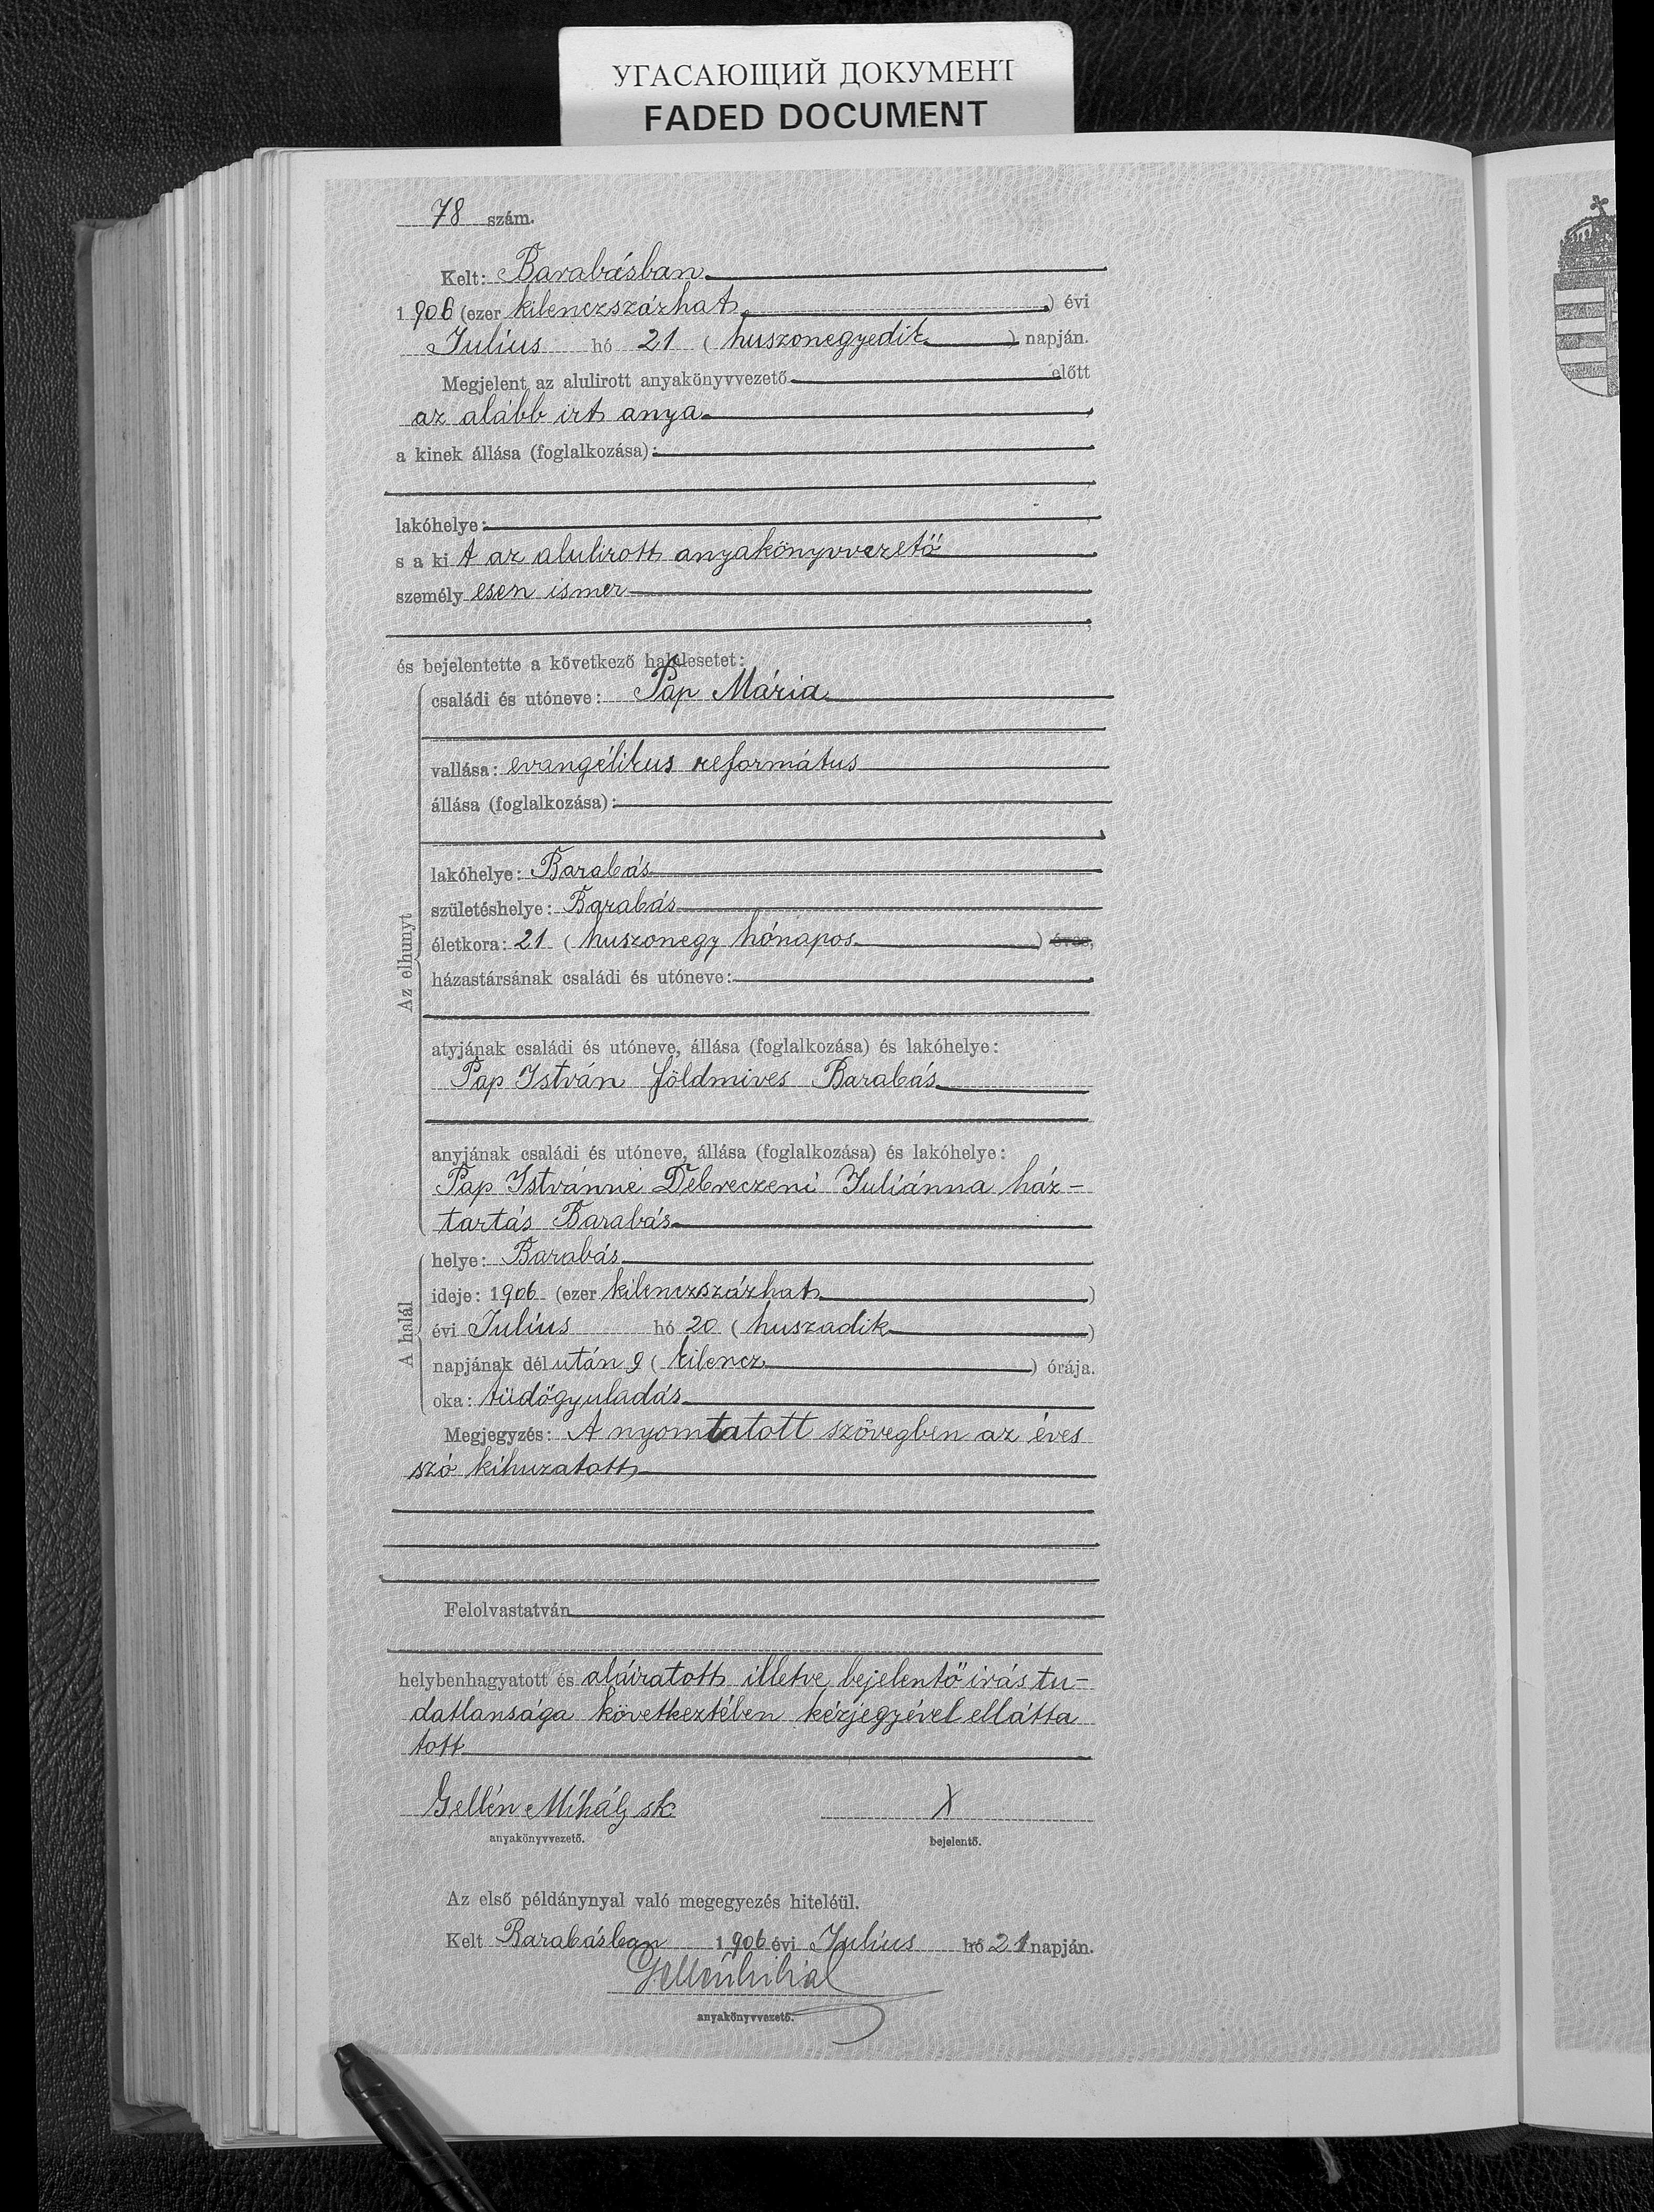 УГАСАЮЩИЙ ДОКУМЕНТ
FADED DOCUMENT
78 szám.
Kelt: Barabásban
1906 (ezer kilenczszázhat ) évi
Julius hó 21 ( huszonegyedik ) napján.
Megjelent az alulirott anyakönyvvezető előtt
az alább irt anya
a kinek állása (foglalkozása):
lakóhelye:
s a ki t az alulirott anyakönyvvezető
személy esen ismer
és bejelentette a következő halálesetet:
Az elhunyt
családi és utóneve: Pap Mária
vallása: evangélikus református
állása (foglalkozása):
lakóhelye: Barabás
születéshelye: Barabás
életkora: 21 ( huszonegy hónapos ) éves,
házastársának családi és utóneve:
atyjának családi és utóneve, állása (foglalkozása) és lakóhelye:
Pap István földmives Barabás
anyjának családi és utóneve, állása (foglalkozása) és lakóhelye:
Pap Istvánné Debreczeni Juliánna ház-
tartás Barabás
A halál
helye: Barabás
ideje: 1906 (ezer kilenczszázhat )
évi Julius hó 20 ( huszadik )
napjának dél után 9 ( kilencz ) órája.
oka: tüdőgyuladás
Megjegyzés: A nyomtatott szövegben az éves
szó kihuzatott
Felolvastatván
helybenhagyatott és aláiratott illetve bejelentő irástu-
datlansága következtében kézjegyével ellátta
tott
Gellén Mihály sk X
anyakönyvvezető. bejelentő.
Az első példánynyal való megegyezés hiteléül.
Kelt Barabásban 1906 évi Julius hó 21 napján.
Gellén Mihál
anyakönyvvezető.